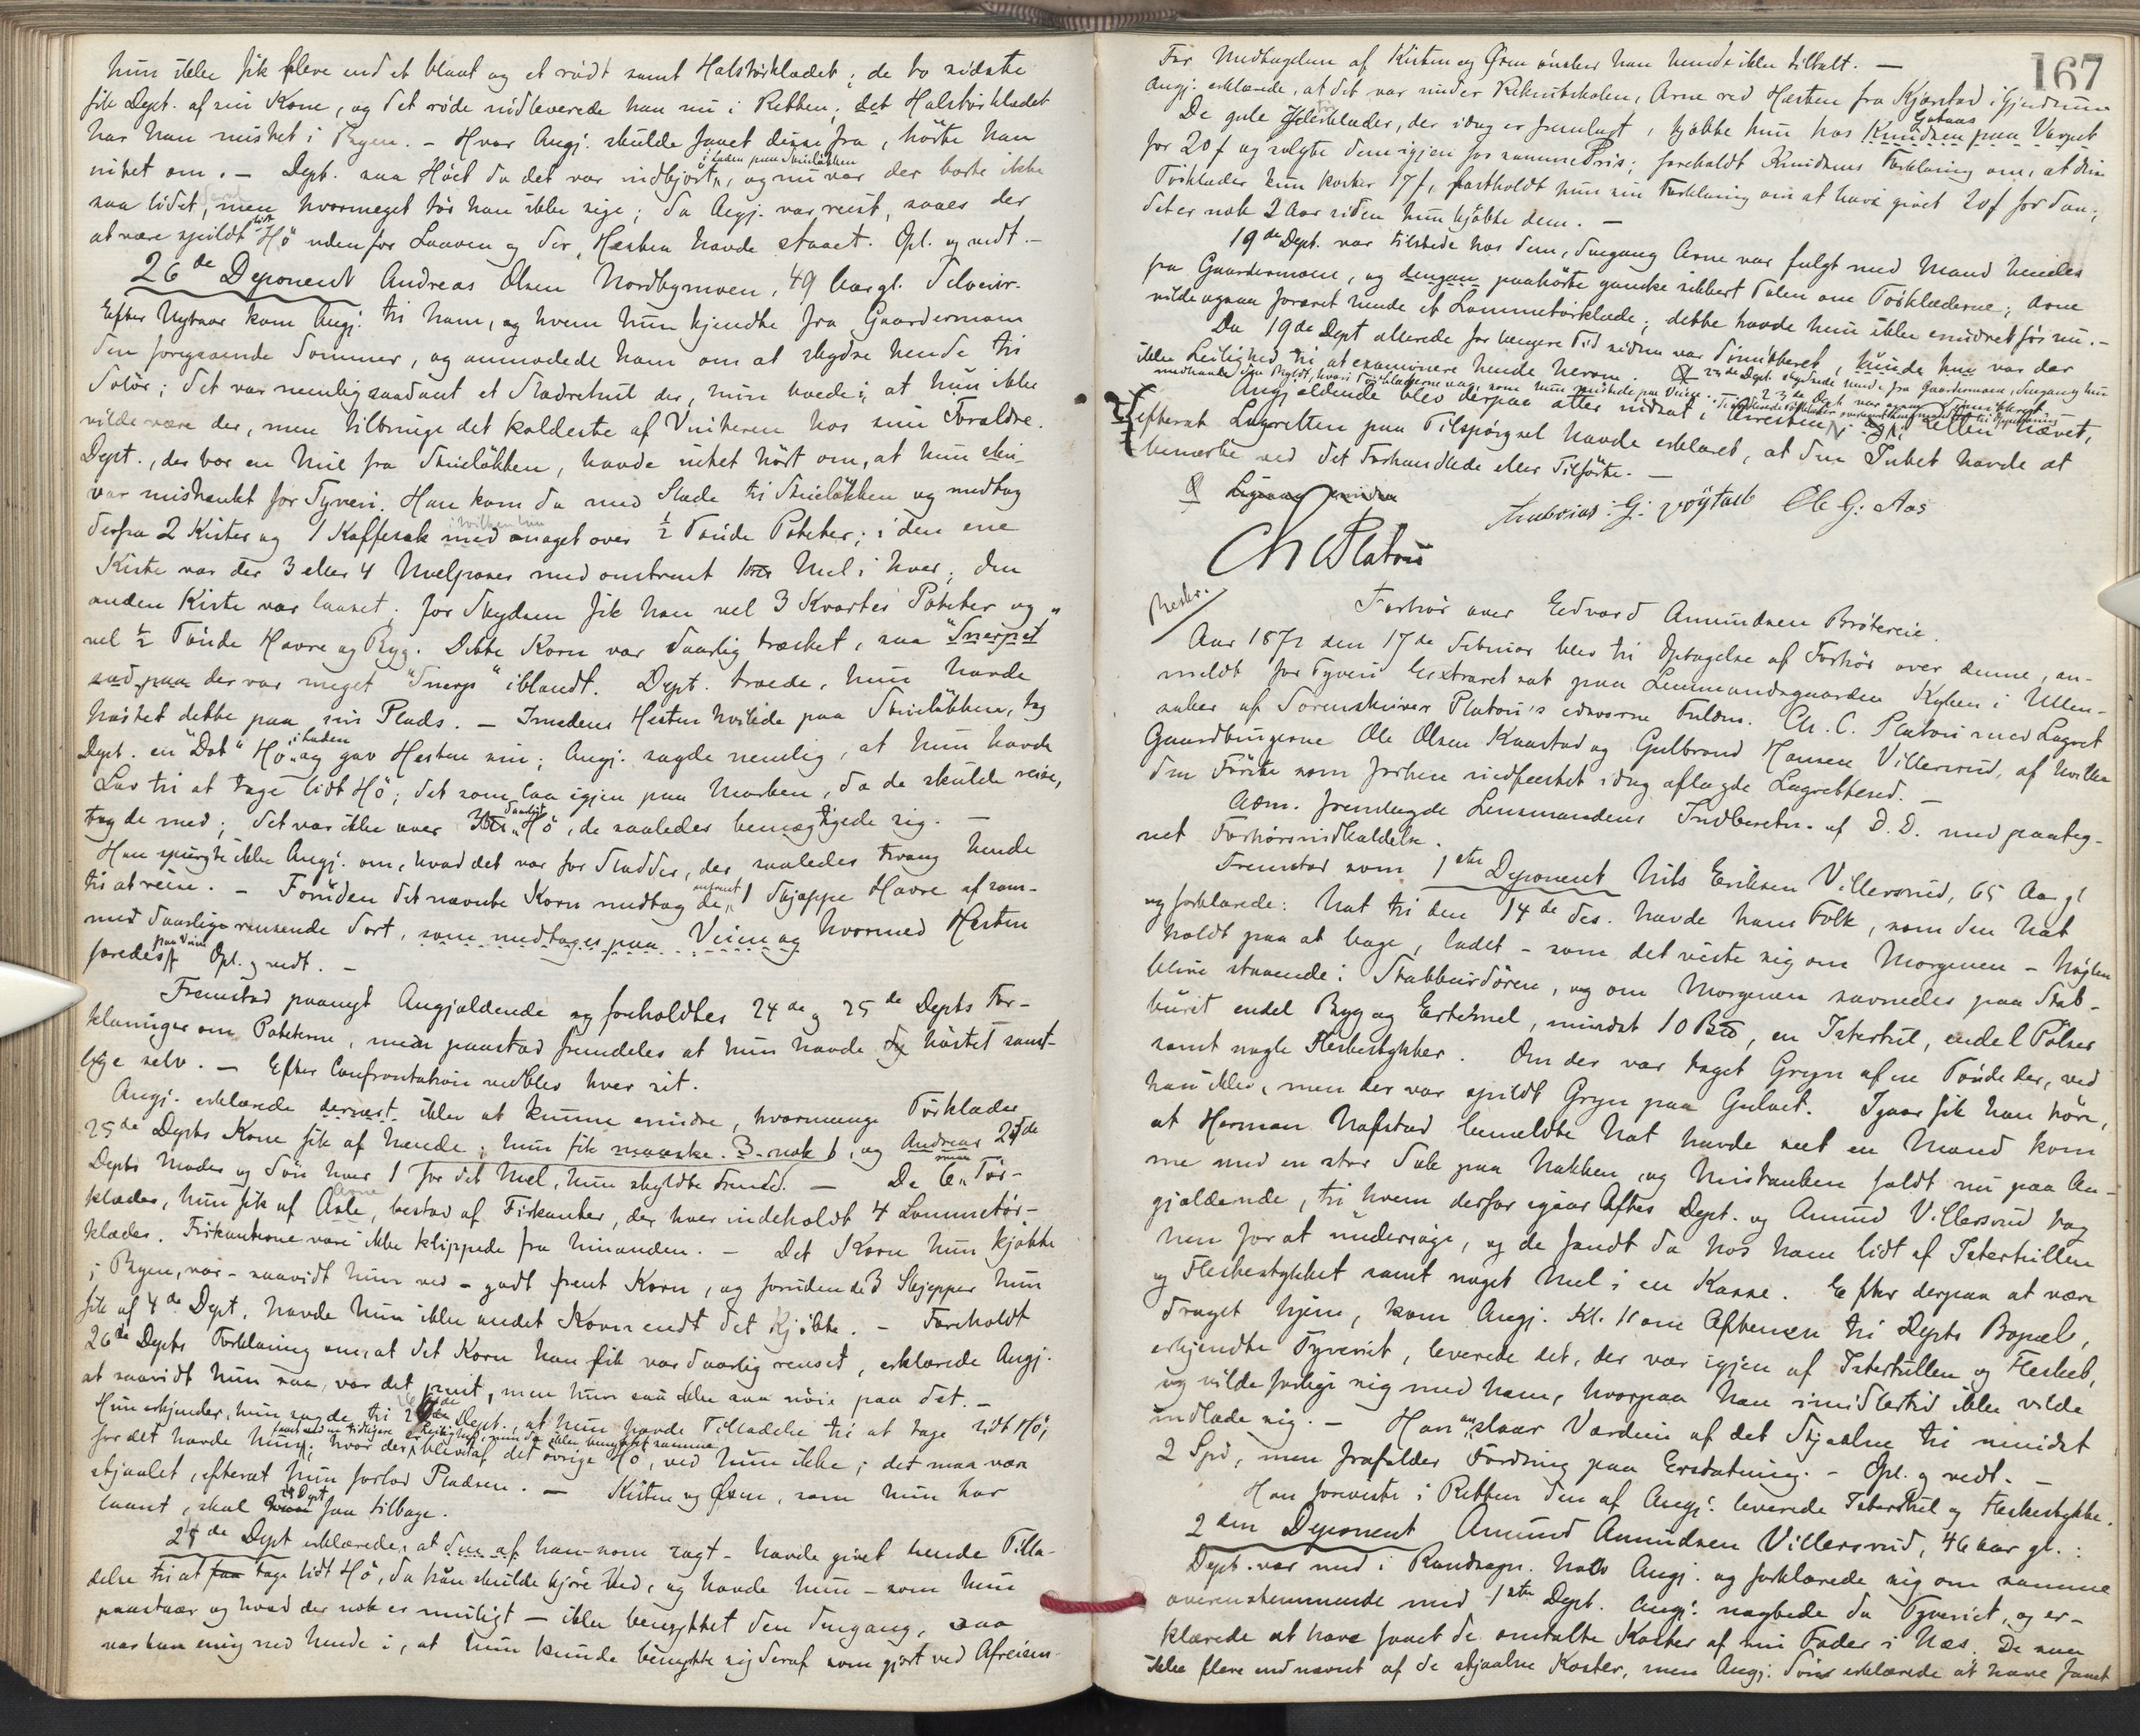 hun ikke fik flere end et blaat og et rødt samt Halstørklædet; de to sidste
fik Dept. af sin Kone, og det røde nedleverede han nu i Retten; det Halstørklædet
har han mistet i Byen. – Hvor Angj. skulde faaet disse fra, hørte han
intet om. – Dept. saa Høet da det var indkjørt i Laden paa Skulløkken, og nu var der borte ikke
saa lidet, men hvormeget tør han ikke sige; da Angj. var reist, saaes der
at være spildt lidt Hø uden for Laaven og der, Hesten havde staaet. Opl. og vedt. –
26de Deponent Andreas Olsen Nordbymoen, 49 Aar gl.
Efter Nytaar kom Angj. til ham, og hvem hun kjendte fra Gaardermoen
den foregaaende Sommer, og anmodede ham om at skydse hende til
Solør; det var nemlig saadant et Sladrehul der, hun boede i, at hun ikke
vilde være der, men tilbringe det koldeste af Vinteren hos sine Forældre.
Dept., der bor en Mil fra Skulløkken, havde intet hørt om, at hun
var mistænkt for Tyveri. Han kom da med Slæde til Skulløkken og medtog
derfra 2 Kister og 1 Kaffesæk med noget over ½ Tønde Poteter; i den ene
Kiste var der 3 eller 4 Melposer med omtrent Mel i hver; den
anden Kiste var laaset. For Skydsen fik han vel 3 Kvarter Poteter og
vel ½ Tønde Havre og Byg. Dette Korn var daarlig træsket, saa "Snerpet"
der var meget "Snerp" iblandt. Dept. troede, hun havde
høstet dette paa sin Plads. – Imedens Hesten hvilede paa Skulløkken, tog
Dept. en "Dot" Hø i Laden og gav Hesten sin; Angj. sagde nemlig, at hun havde
Lov til at tage lidt Hø; det som laa igjen paa Marken, da de skulde reise,
tog de med; det var ikke over daarligt Hø, de saaledes bemægtigede sig. –
Han spurgte ikke Angj. om, hvad det var for Sladder, der saaledes tvang hende
til at reise. – Foruden det nævnte Korn medtog de omtrent 1 Skjæppe Havre af sam-
me daarlige rensede Sort, som medtoges paa Veien og hvormed Hesten
foredes paa Veien. Opl. g vedt. –
Fremstod paanyt Angjældende og foreholdtes 24de og 25de Depts For-
klaringer om Poteterne, men paastod fremdeles at hun havde høstet samt-
lige selv. – Efter Confrontation vedblev hver sit.
Angj. erklærede dernæst ikke at kunne erindre, hvormange Tørklæder
25de Depts Kone fik af hende; hun fik maaske 3 nok 1, og Andreas
Depts Moder og Søn hver 1 for det Mel, hun skyldte Tronds. – De 6 Tør-
klæder, hun fik af Arne, bestod af Firkanter, der hver indeholdt 4 Lommetør-
klæder. Firkanterne vare ikke klippede fra hinanden. – Det Korn hun kjøbte
i Byen, var – saavidt hun ved – godt rent Korn, og foruden de 3 Skjepper hun
fik af 4de Dept, havde hun ikke andet Korn endt det kjøbte. – Foreholdt
26de Depts Forklaring om, at det Korn han fik var daarlig renset, erklærede Angj.
at saavidt hun saa, var det rent, men hun saa ikke saa nøie paa det. –
Hun erkjender, hun sagde til Dept., at hun havde Tilladelse til at tage lidt Hø,
for det havde hun; hvor der blev af det øvrige Hø, ved hun ikke; det maa være
stjaalet, efterat hun forlod Pladsen. – Kisten og Øxen, som hun har
laant, skal Dept faa tilbage.
Dept erklærede, at han – som sagt – havde givet hende Tilla-
delse til at tage lidt Hø, da han skulde kjøre Ved, og havde hun – som hun
paastaar og hvad der nok er muligt – ikke benyttet den dengang, saa
var han enig med hende i, at hun kunde benytte sig deraf som gjort ved Afreisen.
167
For Medtagelsen af Kisten og Øxen ønsker han hende ikke tiltalt. –
Angj. erklærede, at det var under Rekrutskolen, Arne red Hesten fra Kjærstad i Gjerdrum
De gule Tørklæder, der idag er fremlagt, kjøbte hun hos Knudsen paa
for 20 f og solgte dem igjen for samme Pris; foreholdt Knudsens Forklaring om, at disse
Tørklæder kun koster 17 f, fastholdt hun sin Forklaring om at have givet 20 f for dem;
det er nok 2 Aar siden hun kjøbte dem. –
19de Dept. var tilstede hos dem, dengang Arne var fulgt med Mand hendes
fra Gaardermoen, og dengang paahørte ganske sikkert Talen om Tørklæderne; Arne
vilde ogsaa foræret hende et Lommetørklæde; dette havde hun ikke erindret før nu. –
Da 19de Dept allerede for længere Tid siden var dimitteret, kunde hun var der
ikke Leilighed til at examinere hende herom.
Angjældende blev derpaa atter indsat i Arresten og Retten hævet,
efterat Lagretten paa Tilspørgsel havde erklæret, at den Intet havde at
bemærke ved det Forhandlede eller Tilførte. –
Ole G. Aas
Ch Platou
Beskr.
Forhør over Edvard Amundsen Brøtereie.
Aar 1872 den 17de Februar blev til Optagelse af Forhør over denne, an-
meldt for Tyveri Extraret sat paa Lensmandsgaarden Kylen i Ullen-
saker af Sorenskriver Platou's edsvorne Fuldm. Ch. C. Platou med Lagret
Gaardbrugerne Ole Olsen Kaastad og Gulbrand Hansen Villersrud, af hvilke
den Første som forhen uedfæstet idag aflagde Lagretteed. –
Adm. fremlagde Lensmandens Indberetn. af D. D. med paateg-
net Forhørsindkaldelse.
Fremstod som 1ste Deponent Nils Eriksen Villersrud, 65 Aar gl
og forklarede: Nat til den 14de ds. havde hans Folk, som den Nat
holdt paa at bage, ladet – som det viste sig om Morgenen – Nøglen
blive staaende i Stabbursdøren, og om Morgenen savnedes paa Stab-
buret endel Byg og Ertemel, mindst 10 , en Istertul, endel Pølser
samt nogle Fleskestykker. Om der var taget Gryn af en Tønde der, ved
han ikke, men der var spildt Gryn paa Gulvet. Igaar fik han høre,
at Herman Nafstad bemeldte Nat havde seet en Mand kom-
me med en stor Sæk paa Nakken, og Mistanken faldt nu paa An-
gjældende, til hvem derfor igaar Aftes Dept. og Amund Villersrud tog
hen for at undersøge, og de fandt da hos ham lidt af Istertullen
og Fleskestykket samt noget Mel i en Kasse. Efter derpaa at være
draget hjem, kom Angj. Kl. 11 om Aftenen til Depts Bopæl,
erkjendte Tyveriet, leverede det, der var igjen af Istertullen og Flesket,
og vilde forlige sig med ham, hvorpaa han imidlertid ikke vilde
indlade sig. – Han anslaar Værdien af det Stjaalne til mindst
2 Spd, men frafalder Fordring paa Erstatning. – Opl. g vedt. –
Han foreviste i Retten den af Angj. leverede Istertul og Fleskestykke.
2den Deponent Amund Amundsen Villersrud, 46 Aar gl.:
Dept. var med i Randsagn. hos Angj. og forklarede sig om samme
overenstemmende med 1ste Dept. Angj. nægtede da Tyveriet, og er-
klærede at have faaet de omtalte Koster af sin Fader i Næs. De saa
ikke flere end nævnt af de stjaalne Koster, men Angj. Søn erklærede at have faaet